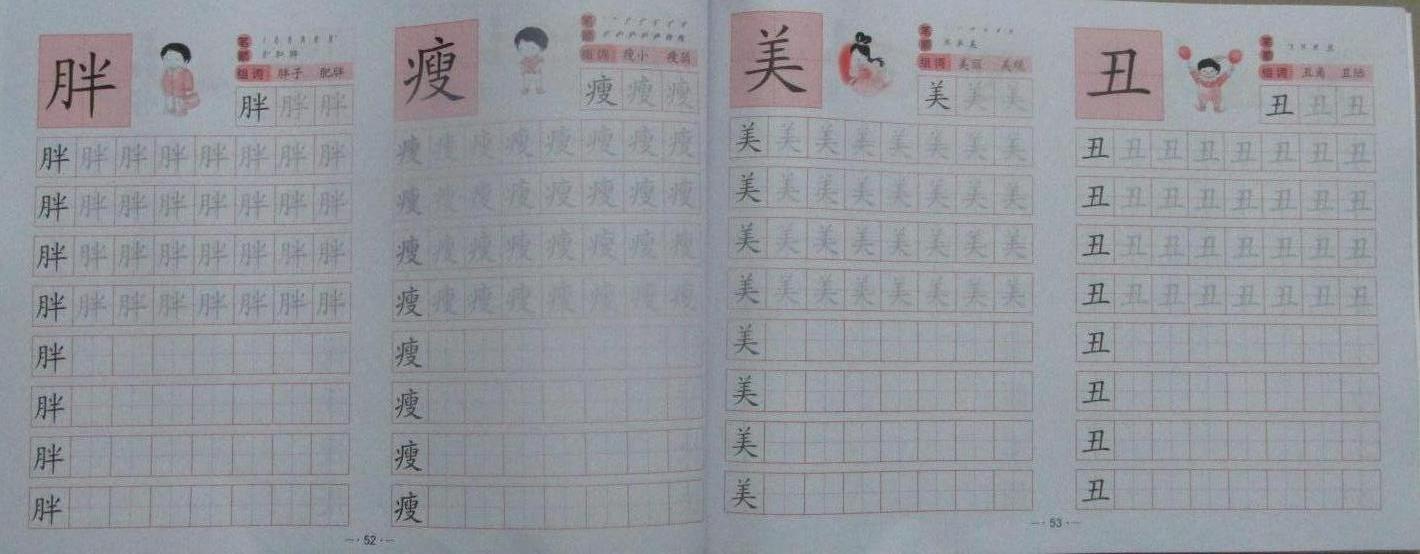 胖
笔顺
组词 胖子 肥胖
胖 胖 胖
胖 胖 胖 胖 胖 胖 胖 胖
胖 胖 胖 胖 胖 胖 胖 胖
胖 胖 胖 胖 胖 胖 胖 胖
胖 胖 胖 胖 胖 胖 胖 胖
胖
胖
胖
胖
瘦
笔顺
组词 瘦小 瘦弱
瘦 瘦 瘦
瘦 瘦 瘦 瘦 瘦 瘦 瘦 瘦
瘦 瘦 瘦 瘦 瘦 瘦 瘦 瘦
瘦 瘦 瘦 瘦 瘦 瘦 瘦 瘦
瘦 瘦 瘦 瘦 瘦 瘦 瘦 瘦
瘦
瘦
瘦
瘦
52
美
笔顺
组词 美丽
美 美 美
美 美 美 美 美 美 美 美
美 美 美 美 美 美 美 美
美 美 美 美 美 美 美 美
美 美 美 美 美 美 美 美
美
美
美
美
丑
笔顺
组词 丑角 丑陋
丑 丑 丑
丑 丑 丑 丑 丑 丑 丑 丑
丑 丑 丑 丑 丑 丑 丑 丑
丑 丑 丑 丑 丑 丑 丑 丑
丑 丑 丑 丑 丑 丑 丑 丑
丑
丑
丑
丑
53